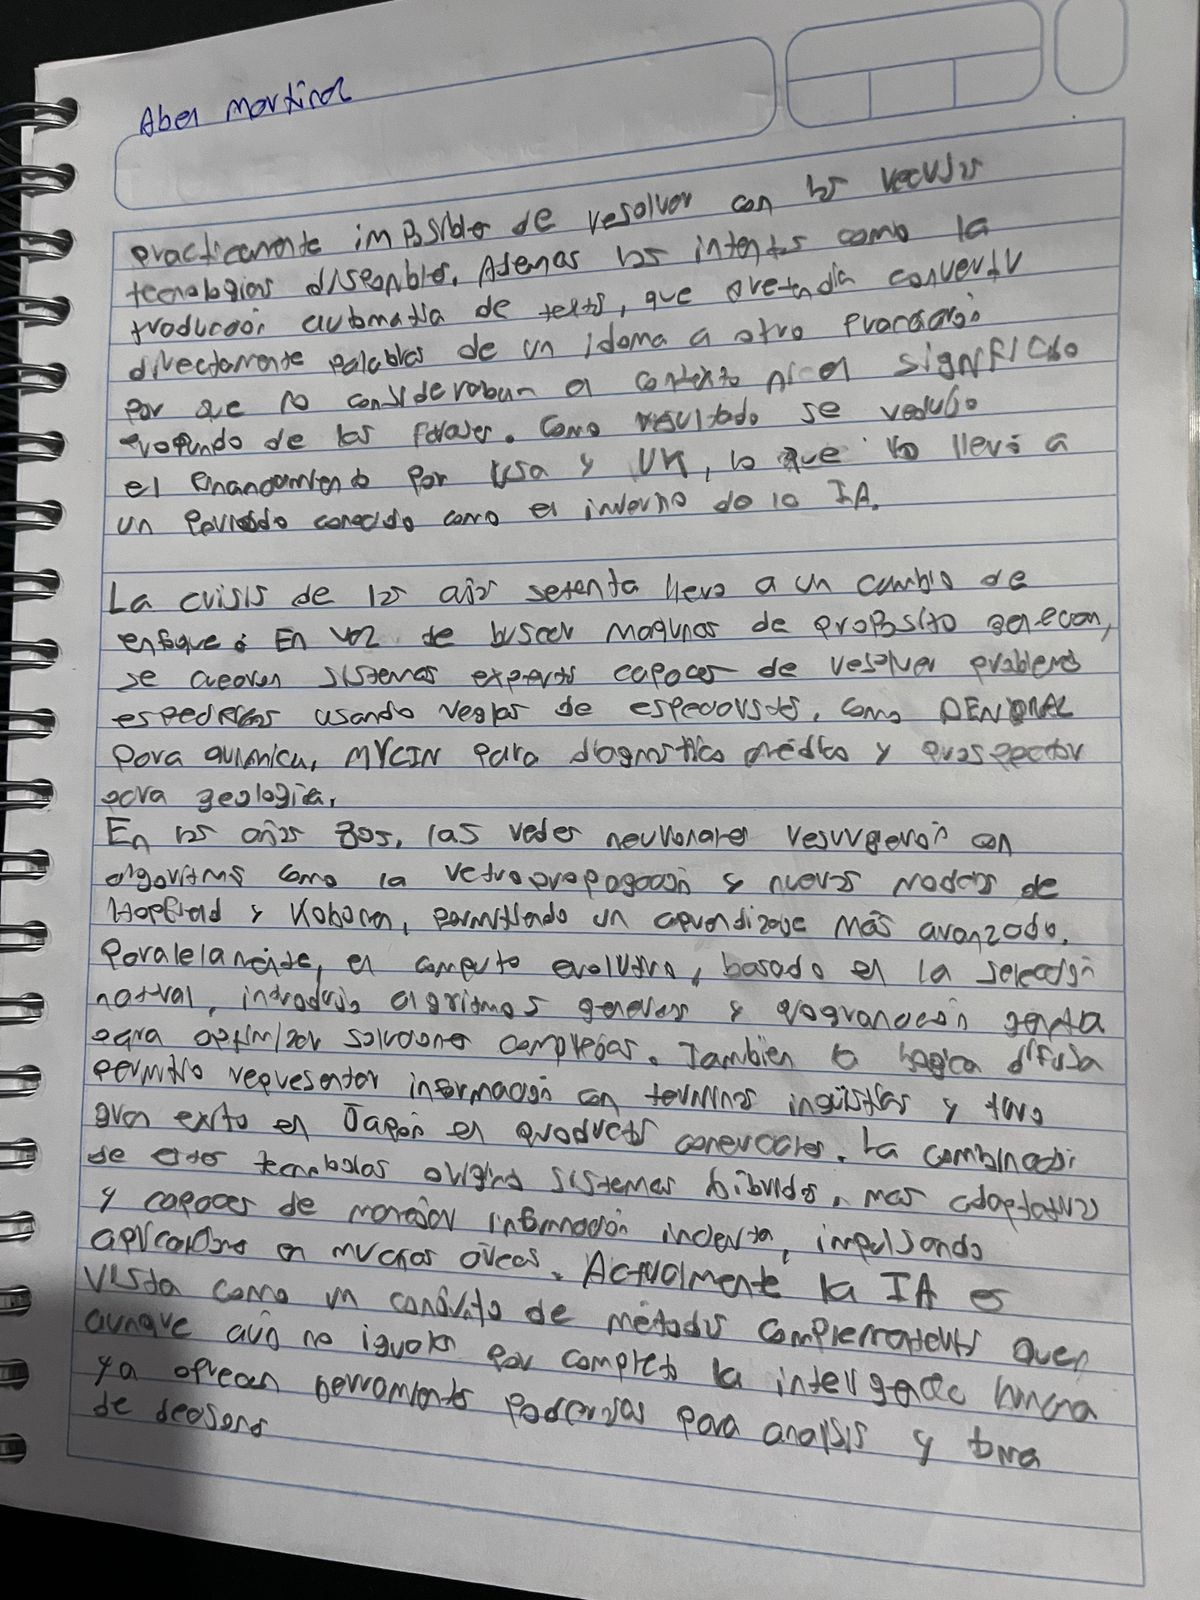 Aben Martinez
practicamente imposibles de resolver con los recursos
tecnologias disponibles. Ademas los intentos como la
traduccoi automatia de textos, que pretendia convertir
directamente palabras de un idoma a otro
por que no considerabun el contexto ni el significdo
profundo de las frases. Como resultado se redujo
el financiamiento por USA y UK, lo que lo llevó a
un periodo conocido como el invierno de la IA.
La crisis de los años setenta llevo a un cambio de
enfoque: En vez de buscar maqunas de proposito
se crearon sistemas expertos capaces de resolver problemas
usando reglas de como DENDRAL
para quimica, MYCIN para diagnostico médico y prospector
para geologia.
En los años 80s, las redes neuronares resurgieron con
algoritmos como la retropropagación y nuevos modelos de
Hopfield y Kohonen, permitiendo un aprendizaje más avanzado.
Paralelamente, el computo evolutivo, basado en la selección
natural, introdujo algoritmos geneticos y
para optimizar soluciones complejas. Tambien la logica difusa
permitio representar información con terminos y tuvo
gran exito en Japón en productos comerciales. La combinacoi
de estas tecnologias origino sistemas hibridos, mas adaptativos
y capaces de manejar información incierta, impulsando
aplicaciones en muchas áreas. Actualmente la IA es
vista como un conjunto de métodos complementarios que,
aunque aún no igualan por completo la humana
ya ofrecen herramientas poderosas para analisis y toma
de